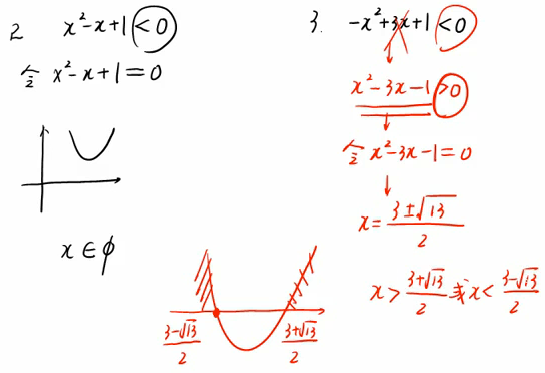 2 x²-x+1<0
令 x²-x+1=0
x∈ϕ
3. -x²+3x+1<0
x²-3x-1>0
令 x²-3x-1=0
x=\frac{3±\sqrt{13}}{2}
x>\frac{3+\sqrt{13}}{2}或x<\frac{3-\sqrt{13}}{2}
\frac{3-\sqrt{13}}{2} \frac{3+\sqrt{13}}{2}